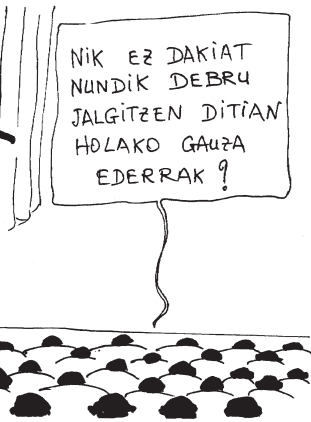 NIK EZ DAKIAT
NUNDIK DEBRU
JALGITZEN DITIAN
HOLAKO GAUZA
EDERRAK ?